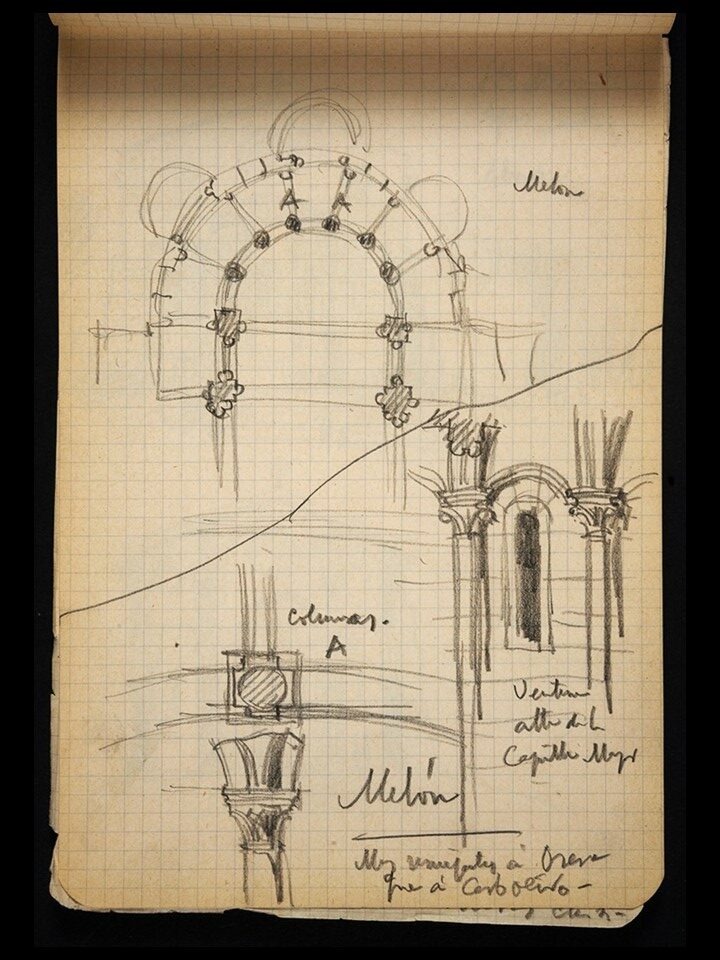 Melón
A A
columnas.
A
Ventana
alta de la
Capilla Mayor
Melón
Mas semejantes á Osera
que á Carboeiro -